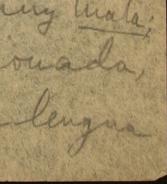 muy mala;
ionada,
lengua